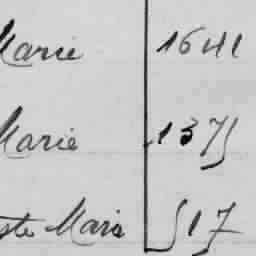 Marie 1641
Marie 1375
ste Marie 517